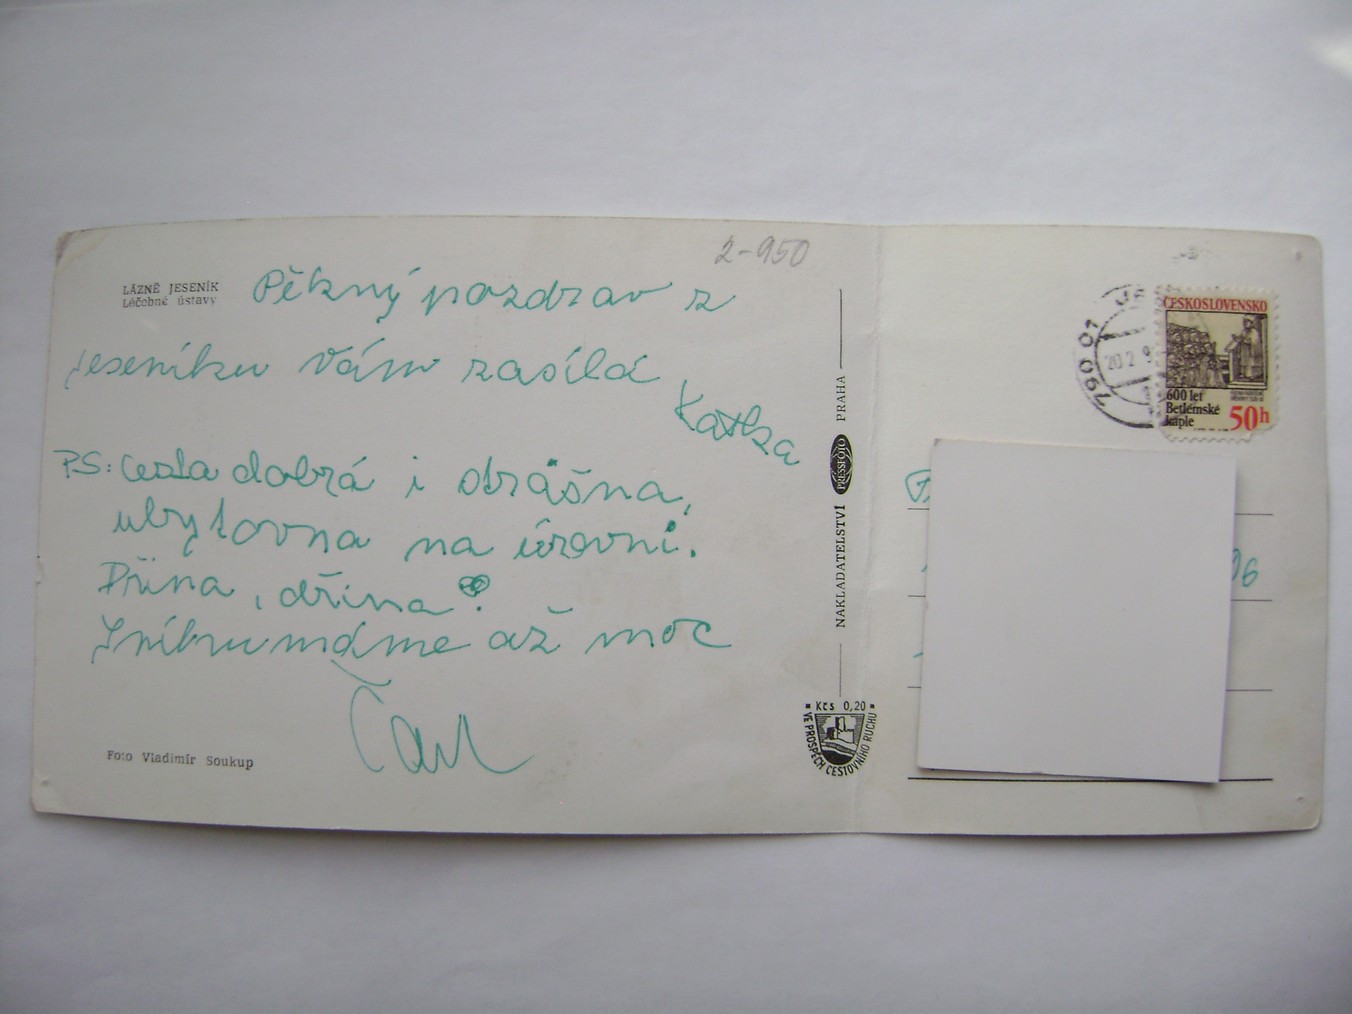 2-950
LÁZNĚ JESENÍK
Léčebné ústavy
Pěkný pozdrav z
Jeseníku Vám zasílá
Katka
PS: cesta dobrá i strašna,
ubytovna na úrovni.
Dřina, dřina!
Sníhu máme až moc
Foto Vladimír Soukup
NAKLADATELSTVÍ PRESSFOTO PRAHA
Kčs 0,20
VE PROSPĚCH CESTOVNÍHO RUCHU
790 01
20.2.9
ČESKOSLOVENSKO
600 let
Betlémské
kaple
50h
06